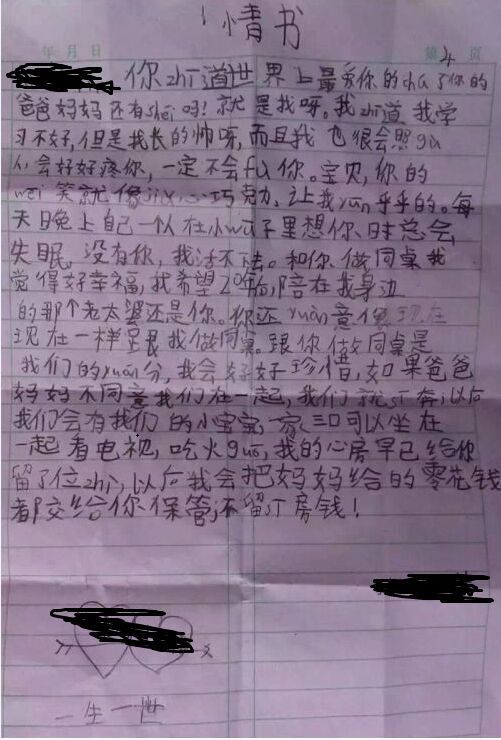 情书
年 月 日 第 4 页
你zhī道世界上最爱你的chú了你的
爸爸妈妈还有shéi吗！就是我呀。我zhī道我学
习不好，但是我长的帅呀，而且我也很会照gù
人会好好疼你，一定不会fù你。宝贝，你的
wēi笑就像jiá心巧克力，让我yūn乎乎的。每
天晚上自己一个人在小wū子里想你，时总会
失眠，没有你，我活不下去。和你做同桌我
觉得好幸福，我希望20年后，陪在我身边
的那个老太婆还是你。你还yuàn意像现在
现在一样跟我做同桌。跟你做同桌是
我们的yuán分，我会好好珍惜，如果爸爸
妈妈不同意我们在一起，我们就奔，以后
我们会有我们的小宝宝，一家三口可以坐在
一起看电视，吃火guō，我的心房早已给你
留了位zhì，以后我会把妈妈给的零花钱
都交给你保管，不留房钱！
一生一世